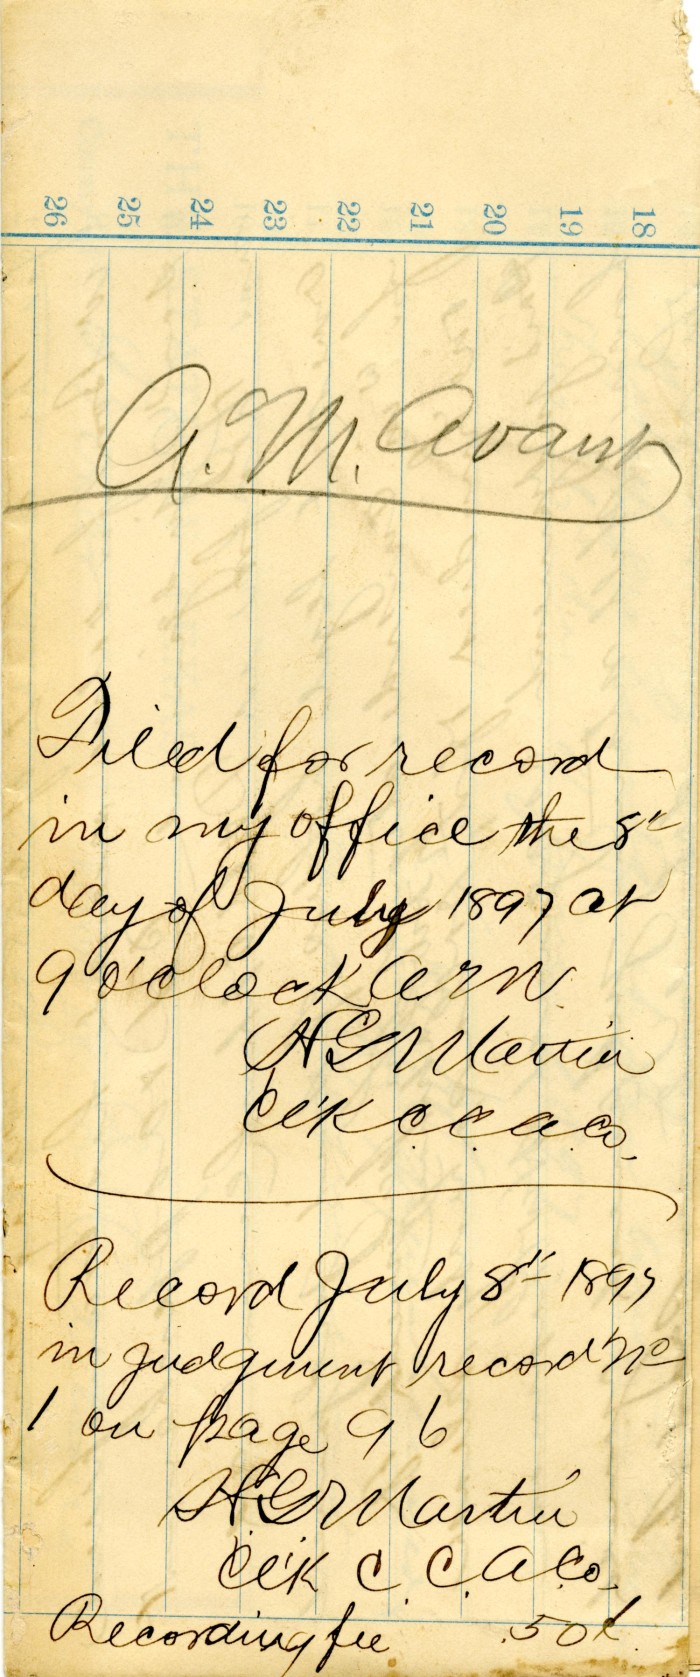 26 25 24 23 22 21 20 19 18
A. M. Avant
Filed for record
in my office the 8"
day of July 1897 at
9 o'clock A M
H G Martin
Cl'k C. C. A. Co.
Record July 8" 1897
in judgment record No
1 on page 96
H G Martin
Cl'k C. C. A. Co.
Recording fee .50¢